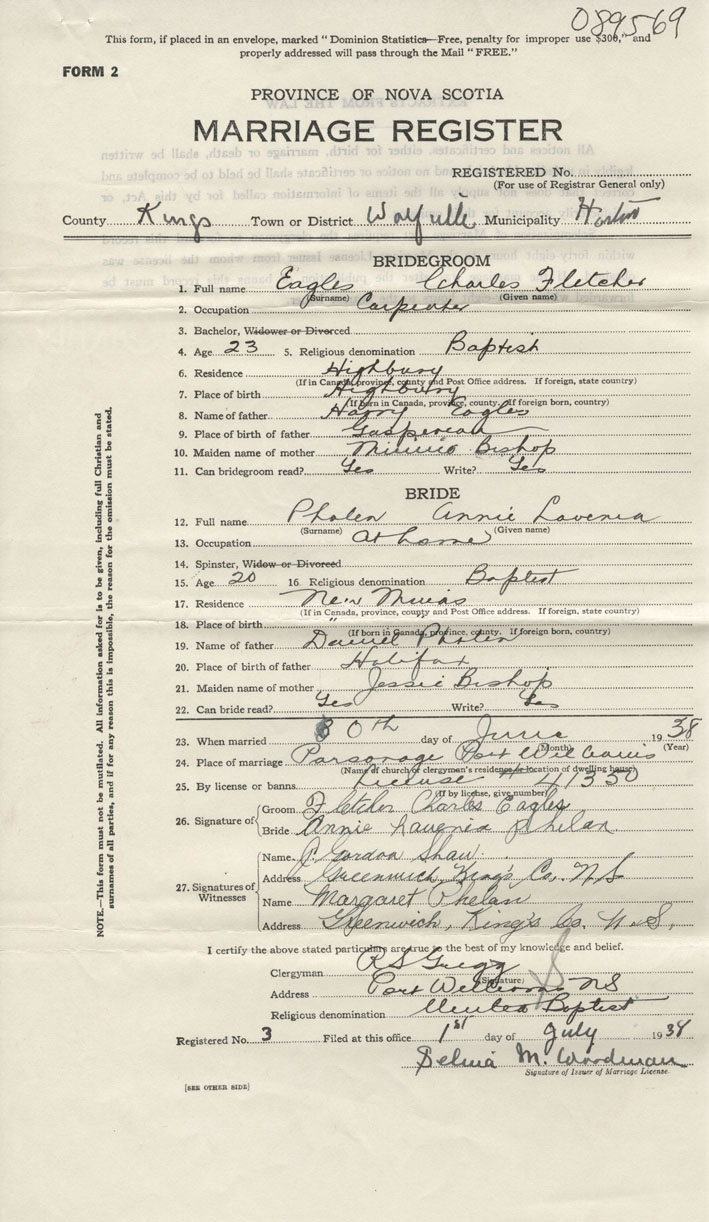 089569
This form, if placed in an envelope, marked "Dominion Statistics—Free, penalty for improper use $300," and
properly addressed will pass through the Mail "FREE."
FORM 2
PROVINCE OF NOVA SCOTIA
MARRIAGE REGISTER
REGISTERED No.
(For use of Registrar General only)
County Kings Town or District Wolfville Municipality Horton
BRIDEGROOM
1. Full name Eagles Charles Fletcher
(Surname) (Given name)
2. Occupation Carpenter
3. Bachelor, Widower or Divorced
4. Age 23 5. Religious denomination Baptist
6. Residence Highbury
(If in Canada, province, county and Post Office address. If foreign, state country)
7. Place of birth Highbury
(If born in Canada, province, county. If foreign born, country)
8. Name of father Harry Eagles
9. Place of birth of father Gaspereau
10. Maiden name of mother Minnie Bishop
11. Can bridegroom read? Yes Write? Yes
BRIDE
12. Full name Phalen Annie Lavenia
(Surname) (Given name)
13. Occupation at home
14. Spinster, Widow or Divorced
15. Age 20 16. Religious denomination Baptist
17. Residence New Minas
(If in Canada, province, county and Post Office address. If foreign, state country)
18. Place of birth "
(If born in Canada, province, county. If foreign born, country)
19. Name of father Daniel Phalen
20. Place of birth of father Halifax
21. Maiden name of mother Jessie Bishop
22. Can bride read? Yes Write? Yes
23. When married 30th day of June 1938
(Month) (Year)
24. Place of marriage Parsonage Port Williams
(Name of church or clergyman's residence or location of dwelling house)
25. By license or banns License
(If by license, give number)
26. Signature of
Groom Fletcher Charles Eagles
Bride Annie Lavenia Phelan
27. Signatures of Witnesses
Name Gordon Shaw
Address Greenwich, King's Co. N S
Name Margaret Phelan
Address Greenwich, King's Co. N. S.
I certify the above stated particulars are true to the best of my knowledge and belief.
Clergyman R S Gregg
(Signature)
Address Port Williams NS
Religious denomination United Baptist
Registered No. 3 Filed at this office 1st day of July 1938
Selina M. Woodman
Signature of Issuer of Marriage License.
[SEE OTHER SIDE]
NOTE.—This form must not be mutilated. All information asked for is to be given, including full Christian and
surnames of all parties, and if for any reason this is impossible, the reason for the omission must be stated.